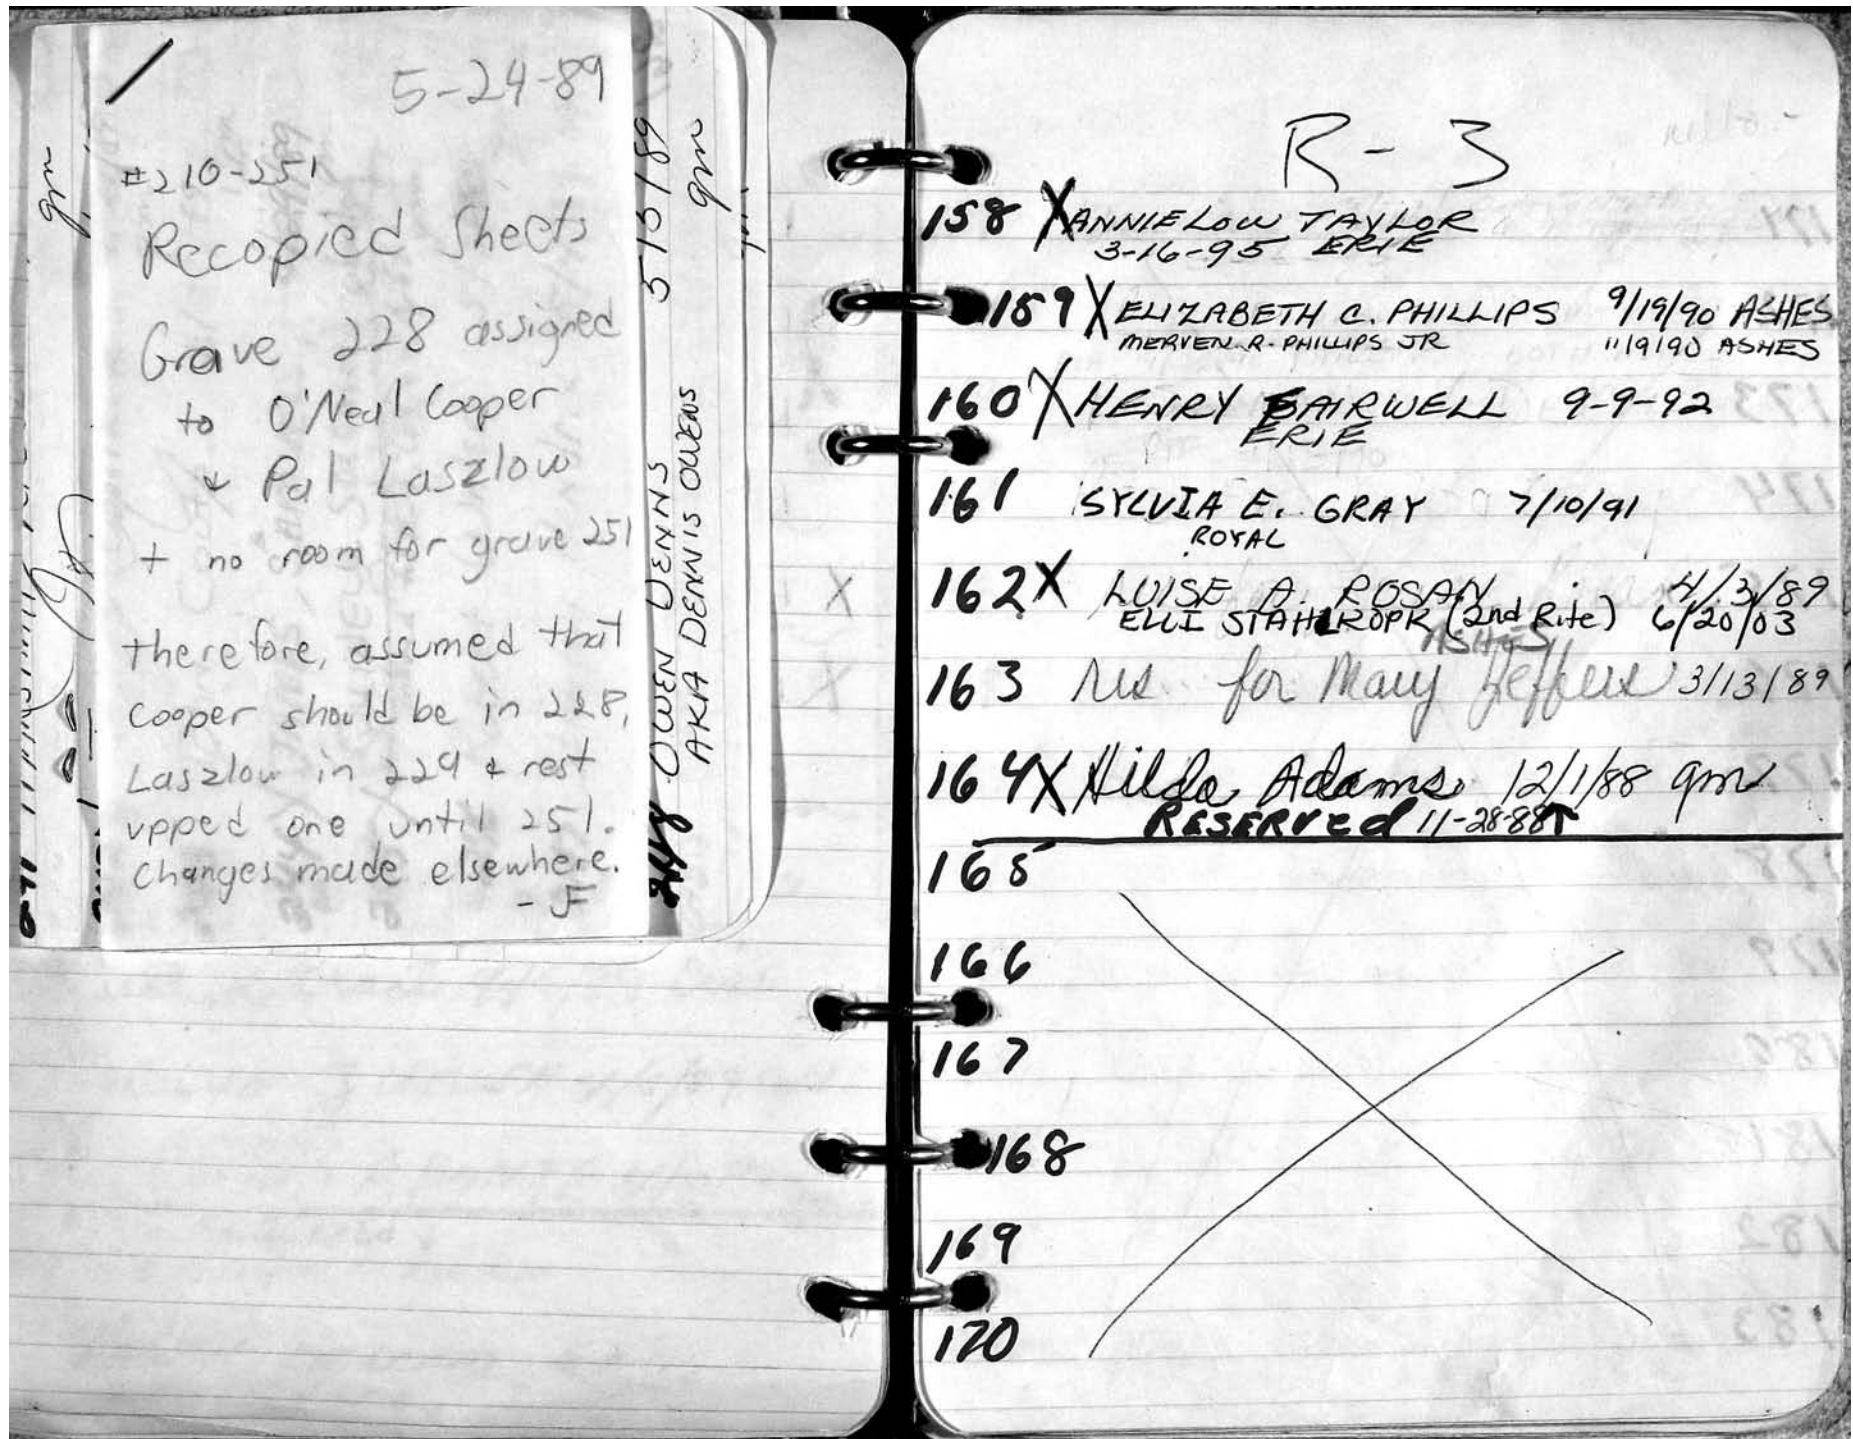 5-24-89
#210-251
Recopied Sheets
Grave 228 assigned
to O'Neal Cooper
& Pal Laszlow
+ no room for grave 251
therefore, assumed that
Cooper should be in 228,
Laszlow in 229 & rest
upped one until 251.
Changes made elsewhere.
- JF
OWEN DENNS 5/5/89
AKA DENNIS OWENS gm
gm
R-3
158 X ANNIE LOW TAYLOR
3-16-95 ERIE
159 X ELIZABETH C. PHILLIPS 9/19/90 ASHES
MERVEN R. PHILLIPS JR 11/9/90 ASHES
160 X HENRY FAIRWELL 9-9-92
ERIE
161 SYLVIA E. GRAY 7/10/91
ROYAL
162 X LUISE A. ROSAN 4/3/89
ELLI STAHLROPR (2nd Rite) 6/20/03
ASHES
163 res. for Mary Jeffers 3/13/89
164 X Hilda Adams 12/1/88 gm
RESERVed 11-28-88↑
165
166
167
168
169
170